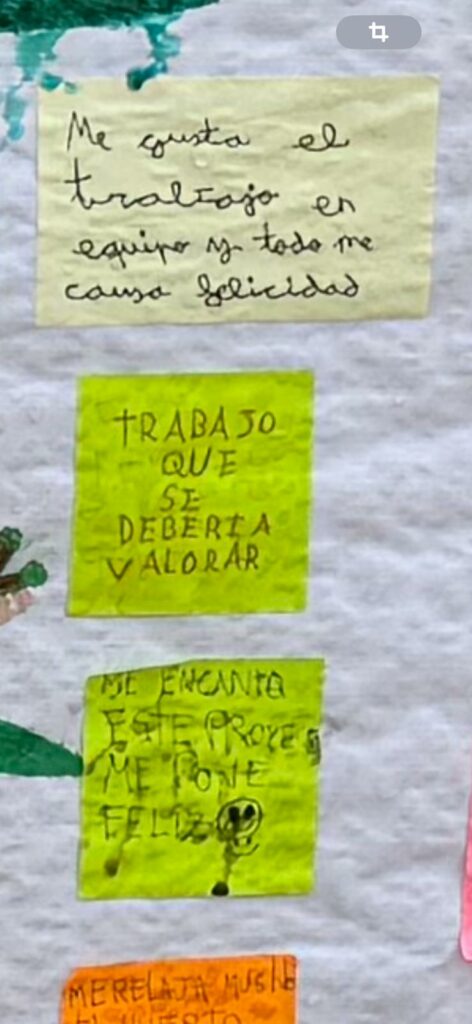 Me gusta el
trabajo en
equipo y todo me
causa felicidad
TRABAJO
QUE
SE
DEBERIA
VALORAR
ME ENCANTA
ESTE PROYE
ME PONE
FELIZ
ME RELAJA MUSHO
EL HUERTO